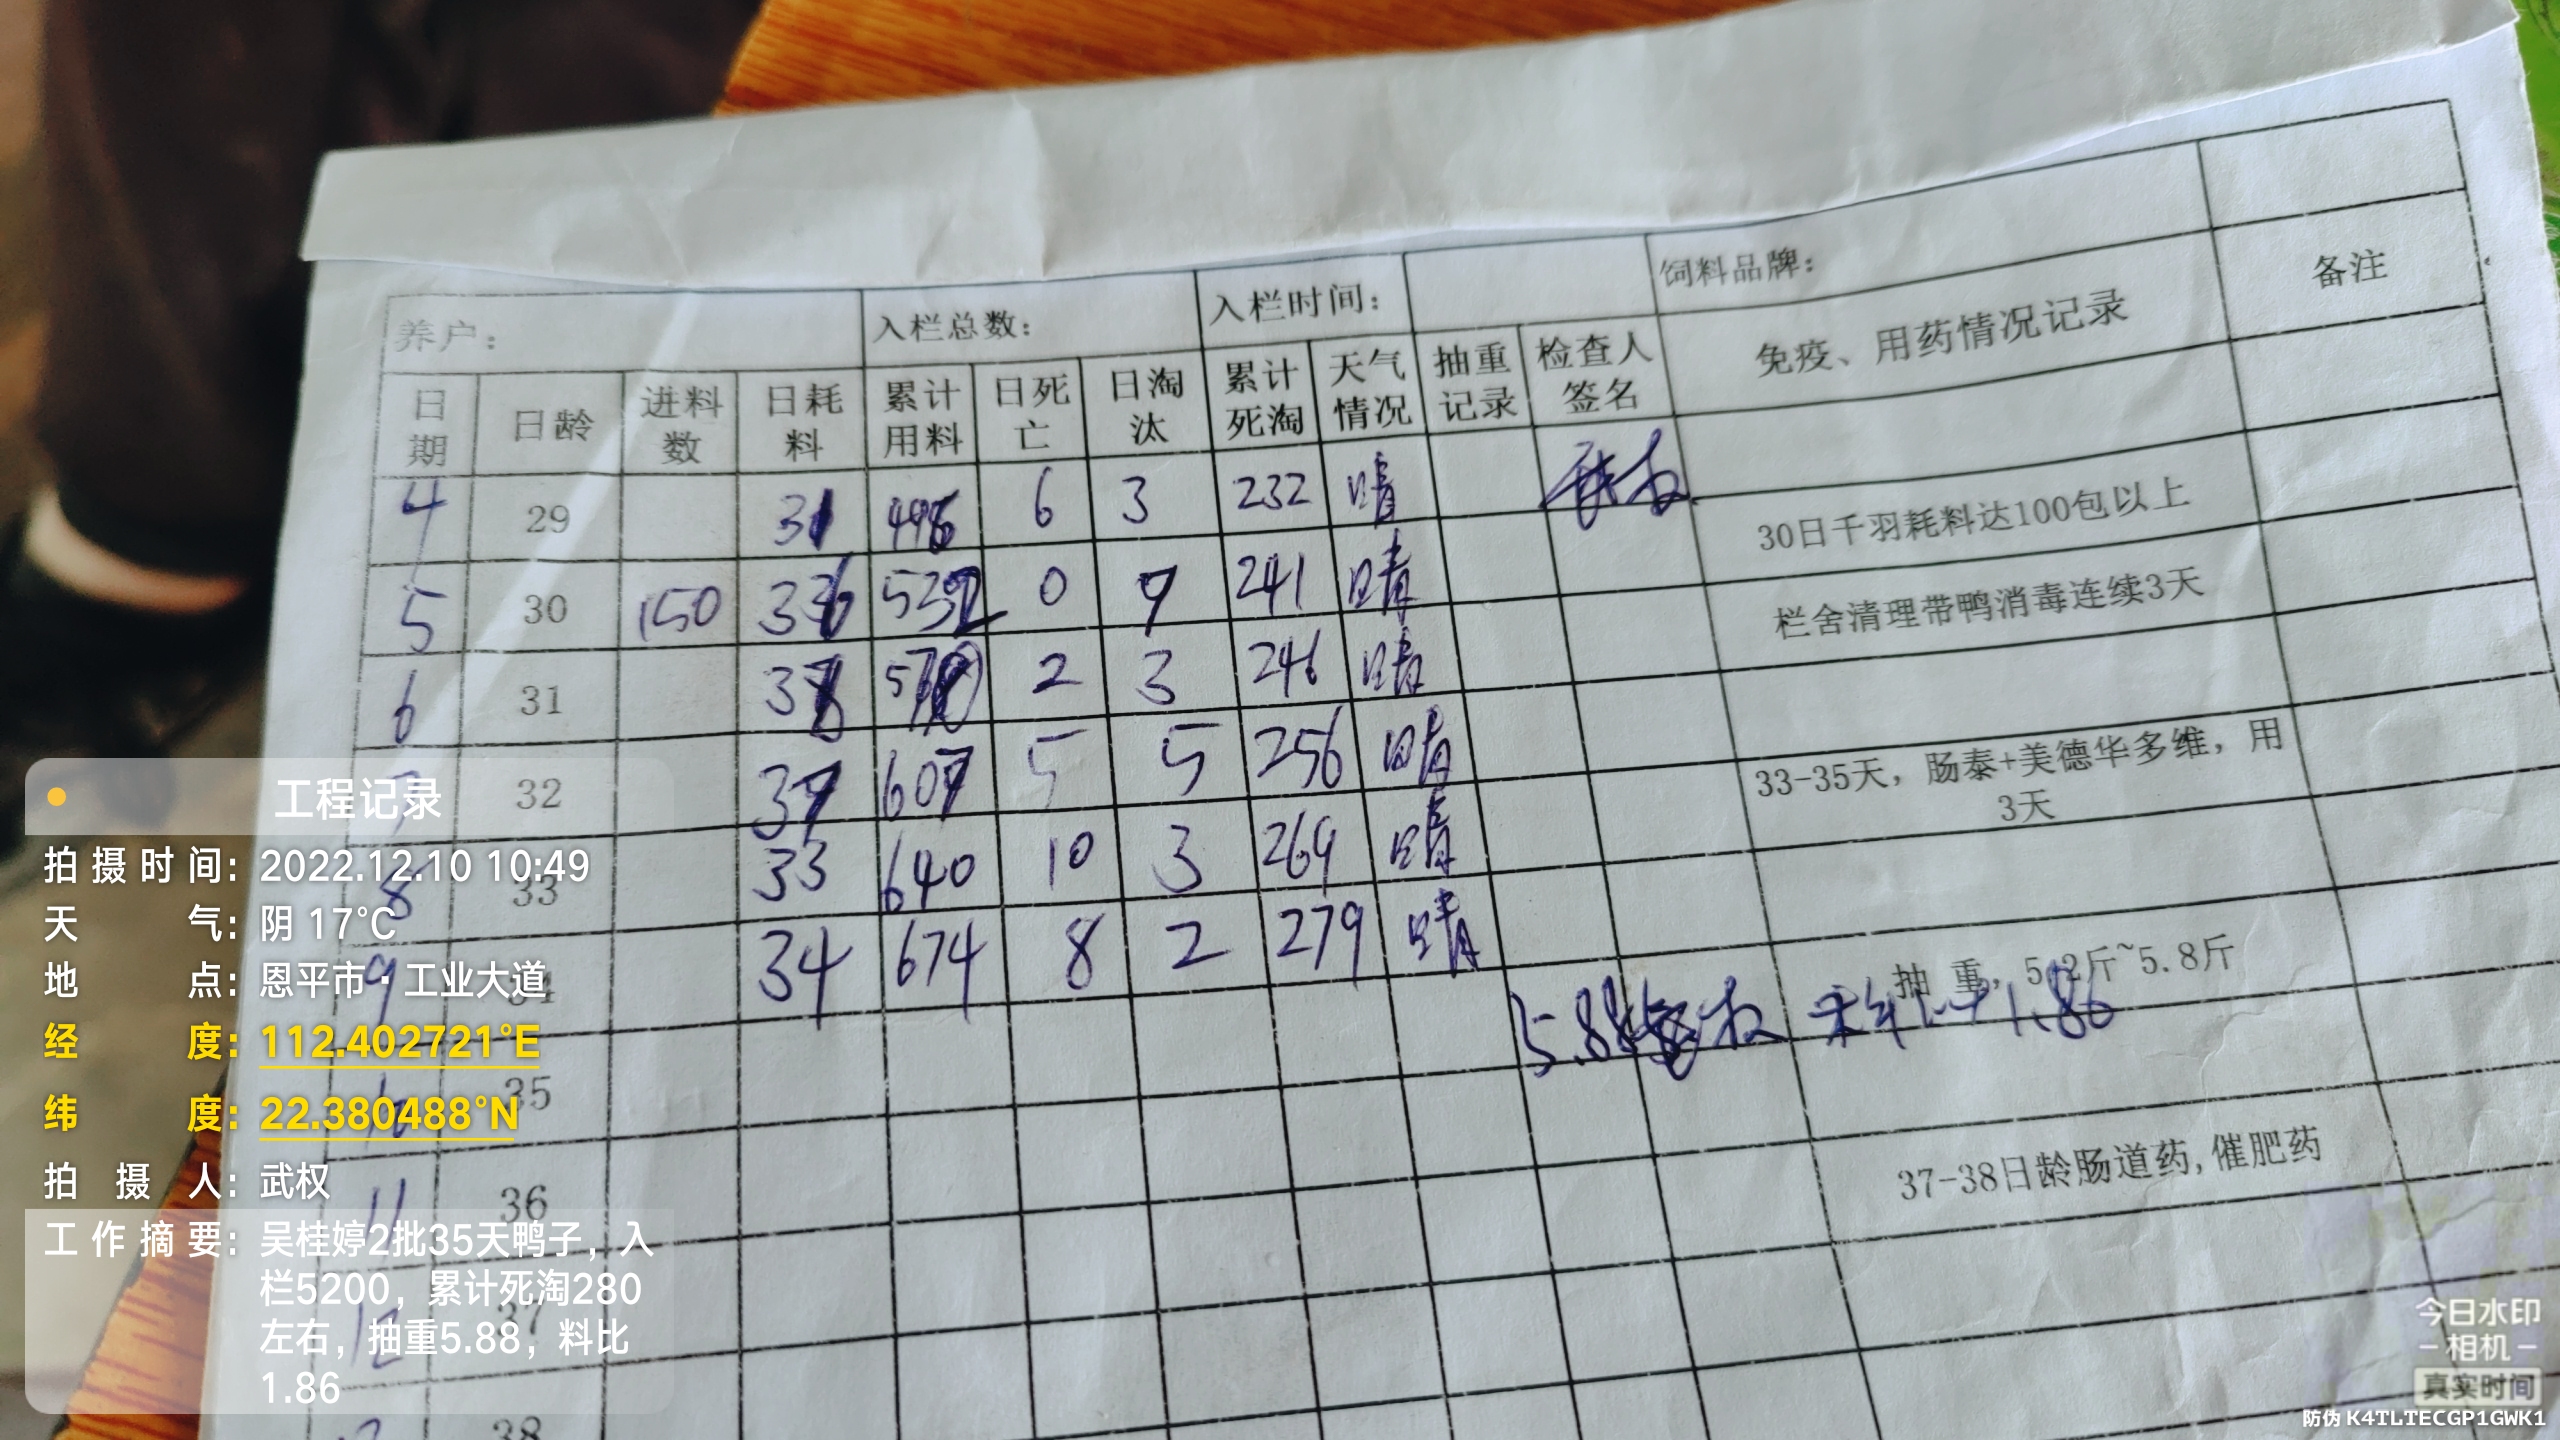 养户： 入栏总数： 入栏时间： 饲料品牌：
日期 日龄 进料数 日耗料 累计用料 日死亡 日淘汰 累计死淘 天气情况 抽重记录 检查人签名 免疫、用药情况记录 备注
4 29 31 496 6 3 232 晴
30日千羽耗料达100包以上
5 30 150 36 532 0 9 241 晴
栏舍清理带鸭消毒连续3天
6 31 38 570 2 3 246 晴
32 37 607 5 5 256 晴
33-35天，肠泰+美德华多维，用
3天
8 33 33 640 10 3 269 晴
9 34 34 674 8 2 279 晴
抽 重，5.2斤~5.8斤
5.88 武权 料比1.86
35
11 36
37-38日龄肠道药,催肥药
12 37
38
工程记录
拍摄时间：2022.12.10 10:49
天气：阴 17℃
地点：恩平市·工业大道
经度：112.402721°E
纬度：22.380488°N
拍摄人：武权
工作摘要：吴桂婷2批35天鸭子，入
栏5200，累计死淘280
左右，抽重5.88，料比
1.86
今日水印
相机
真实时间
防伪 K4TLTECGP1GWK1